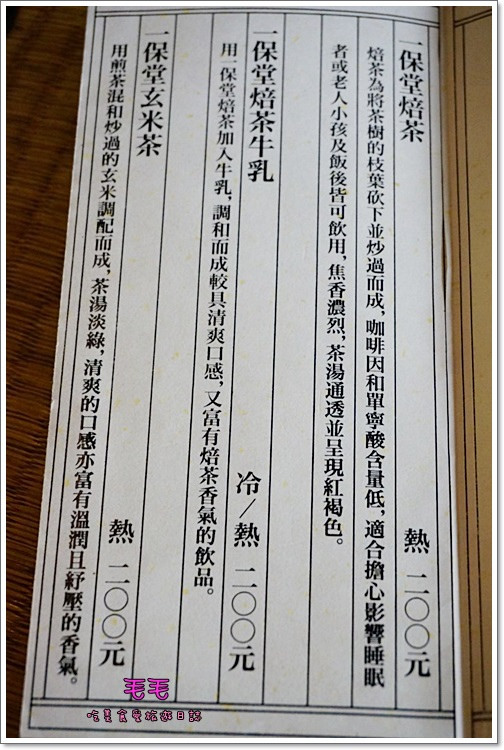 一保堂焙茶 熱 二〇〇元
焙茶為將茶樹的枝葉砍下並炒過而成，咖啡因和單寧酸含量低，適合擔心影響睡眠
者或老人小孩及飯後皆可飲用，焦香濃烈，茶湯通透並呈現紅褐色。
一保堂焙茶牛乳 冷／熱 二〇〇元
用一保堂焙茶加入牛乳，調和而成較具清爽口感，又富有焙茶香氣的飲品。
一保堂玄米茶 熱 二〇〇元
用煎茶混和炒過的玄米調配而成，茶湯淡綠，清爽的口感亦富有溫潤且紓壓的香氣。
毛毛
吃美食愛旅遊日誌